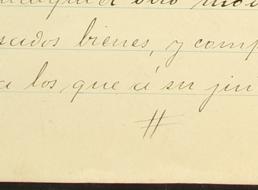 otro
sados bienes, y comp
a los que á su fin
#